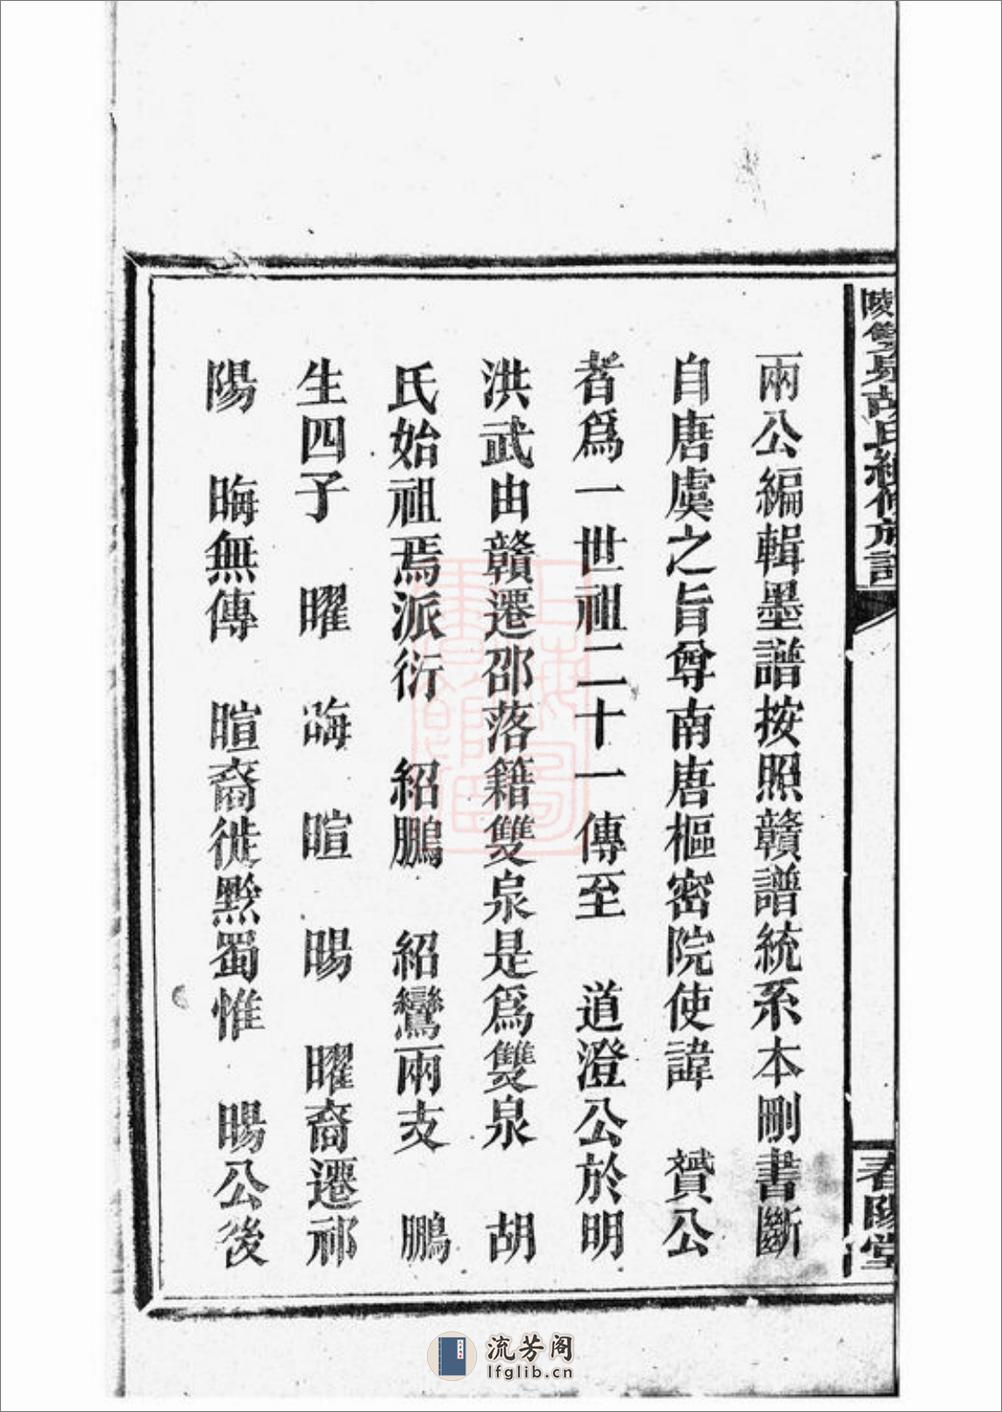 陵雙泉胡氏續修族譜
春陽堂
兩公編輯墨譜按照贛譜統系本刪書斷
自唐虞之旨尊南唐樞密院使諱 贇公
者爲一世祖二十一傳至 道澄公於明
洪武由贛遷邵落籍雙泉是爲雙泉 胡
氏始祖焉派衍 紹鵬 紹鸞兩支 鵬
生四子 曜 晦 暄 暘 曜裔遷祁
陽 晦無傳 暄裔徙黔蜀惟 暘公後
上海圖書館藏
流芳阁
lfglib.cn